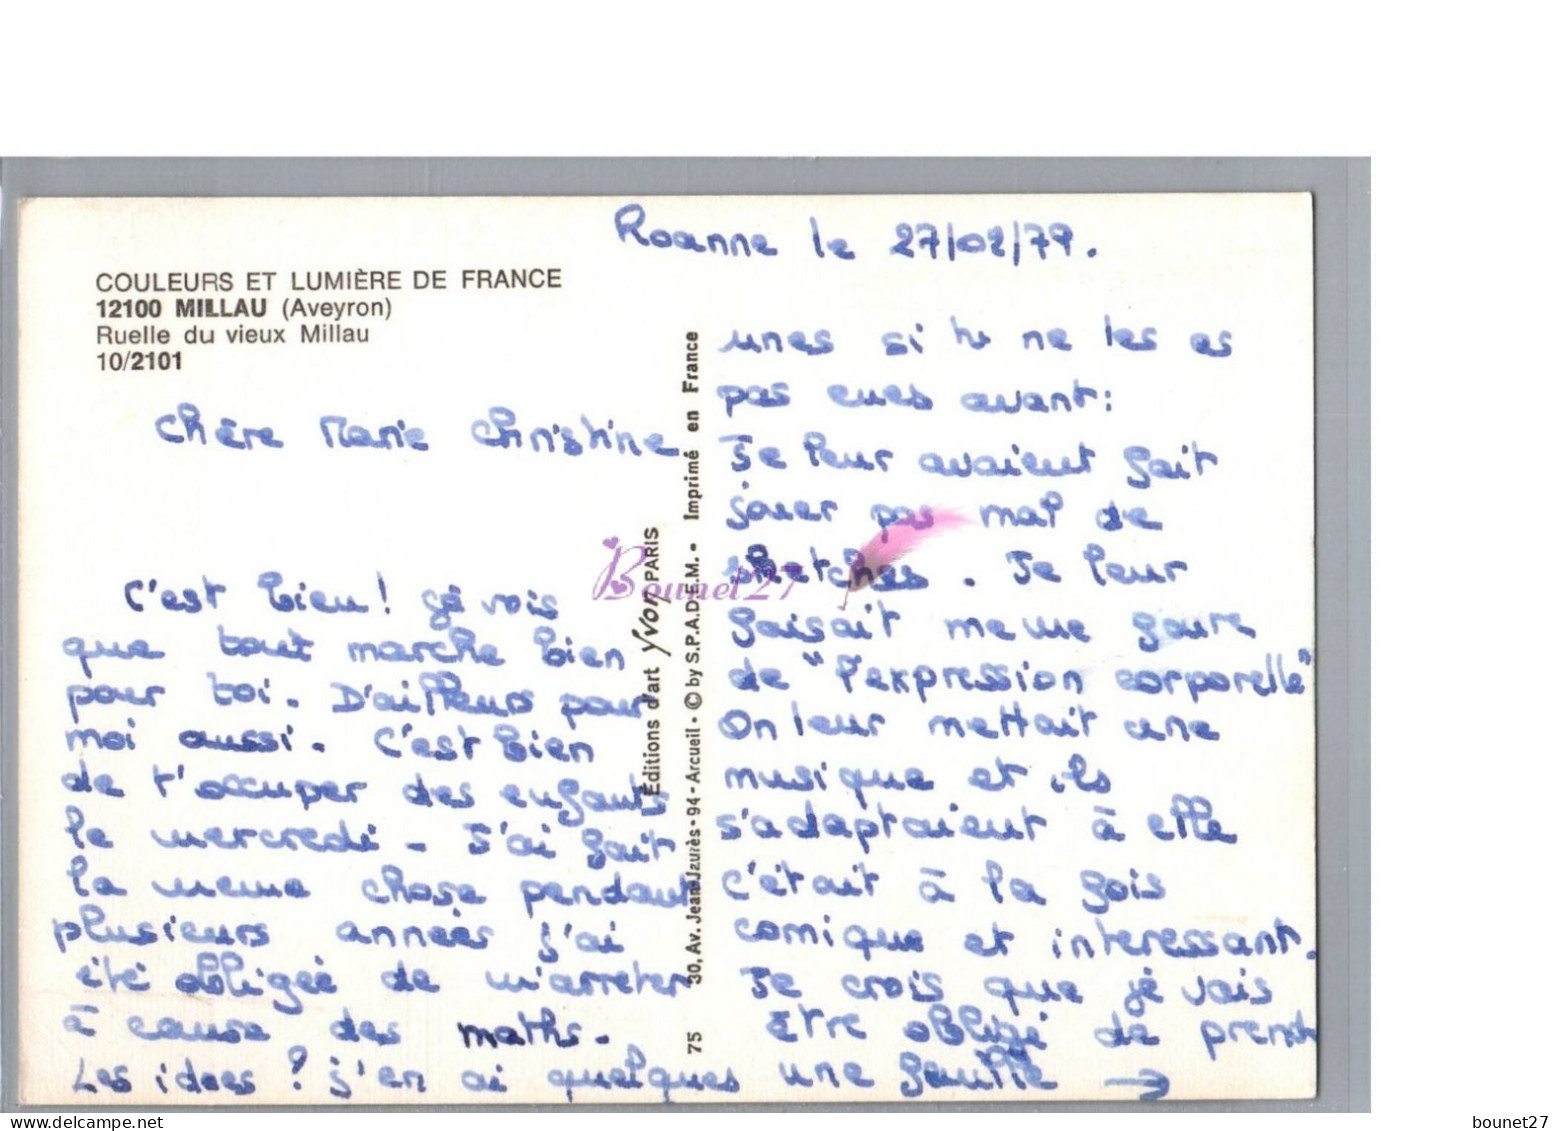 Roanne le 27/02/79.
COULEURS ET LUMIÈRE DE FRANCE
12100 MILLAU (Aveyron)
Ruelle du vieux Millau
10/2101
Chère Marie Christine
C'est bien! je vois
que tout marche bien
pour toi. D'ailleurs pour
moi aussi. C'est bien
de t'occuper des enfants
le mercredi - J'ai fait
la meme chose pendant
plusieurs années j'ai
été obligée de m'arreter
à cause des maths.
Les idées? j'en ai quelques
Éditions d'art YVON PARIS
30, Av. Jean Jaurès - 94 - Arcueil • © by S.P.A.D.E.M. • Imprimé en France
75
unes si tu ne les as
pas eues avant:
Je leur avaient fait
jouer pas mal de
sketches. Je leur
faisait meme faire
de "l'expression corporelle"
On leur mettait une
musique et ils
s'adaptaient à elle
c'était à la fois
comique et interessant.
Je crois que je vais
être obligé de prendr
une feuille →
Bounet27
bounet27